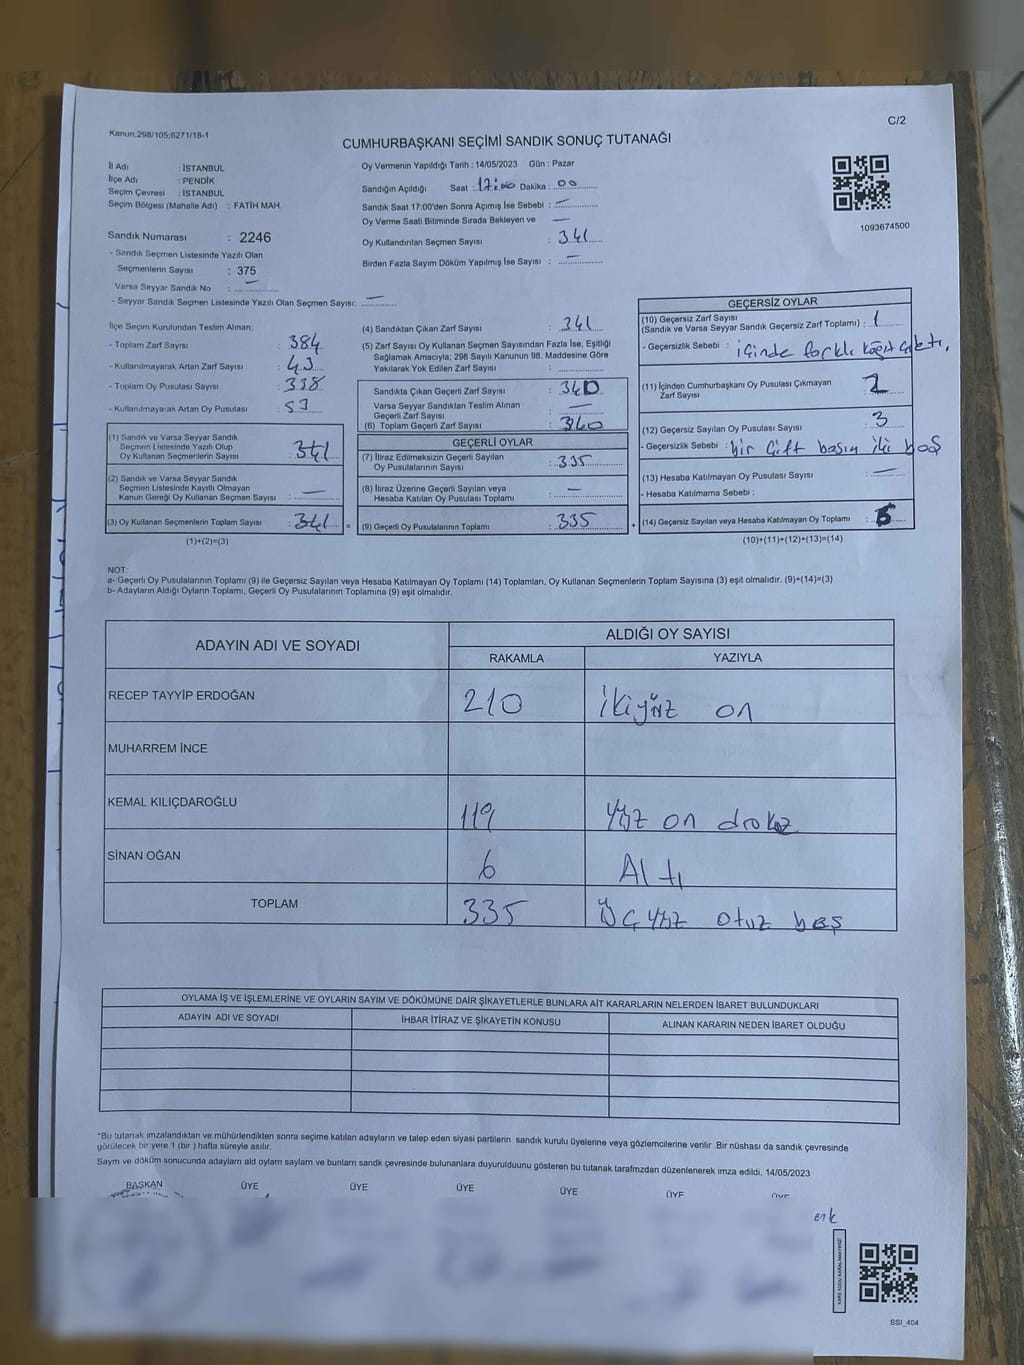 Kanun:298/105;6271/18-1
C/2
CUMHURBAŞKANI SEÇİMİ SANDIK SONUÇ TUTANAĞI
İl Adı : İSTANBUL
İlçe Adı : PENDİK
Seçim Çevresi : İSTANBUL
Seçim Bölgesi (Mahalle Adı) : FATİH MAH.
Oy Vermenin Yapıldığı Tarih : 14/05/2023 Gün : Pazar
Sandığın Açıldığı Saat : 17:00 Dakika : 00
Sandık Saat 17:00'den Sonra Açılmış İse Sebebi : —
Oy Verme Saati Bitiminde Sırada Bekleyen ve —
Oy Kullandırılan Seçmen Sayısı : 341
Birden Fazla Sayım Döküm Yapılmış İse Sayısı : —
1093674500
Sandık Numarası : 2246
- Sandık Seçmen Listesinde Yazılı Olan
Seçmenlerin Sayısı : 375
Varsa Seyyar Sandık No : —
- Seyyar Sandık Seçmen Listesinde Yazılı Olan Seçmen Sayısı: —
İlçe Seçim Kurulundan Teslim Alınan;
- Toplam Zarf Sayısı : 384
- Kullanılmayarak Artan Zarf Sayısı : 43
- Toplam Oy Pusulası Sayısı :
- Kullanılmayarak Artan Oy Pusulası :
(1) Sandık ve Varsa Seyyar Sandık
Seçmen Listesinde Yazılı Olup
Oy Kullanan Seçmenlerin Sayısı : 341
(2) Sandık ve Varsa Seyyar Sandık
Seçmen Listesinde Kayıtlı Olmayan
Kanun Gereği Oy Kullanan Seçmen Sayısı : —
(3) Oy Kullanan Seçmenlerin Toplam Sayısı : 341 =
(1)+(2)=(3)
(4) Sandıktan Çıkan Zarf Sayısı : 341
(5) Zarf Sayısı Oy Kullanan Seçmen Sayısından Fazla İse, Eşitliği
Sağlamak Amacıyla; 298 Sayılı Kanunun 98. Maddesine Göre
Yakılarak Yok Edilen Zarf Sayısı :
Sandıkta Çıkan Geçerli Zarf Sayısı : 340
Varsa Seyyar Sandıktan Teslim Alınan —
Geçerli Zarf Sayısı :
(6) Toplam Geçerli Zarf Sayısı : 340
GEÇERLİ OYLAR
(7) İtiraz Edilmeksizin Geçerli Sayılan
Oy Pusulalarının Sayısı : 335
(8) İtiraz Üzerine Geçerli Sayılan veya
Hesaba Katılan Oy Pusulası Toplamı : —
(9) Geçerli Oy Pusulalarının Toplamı : 335 +
GEÇERSİZ OYLAR
(10) Geçersiz Zarf Sayısı
(Sandık ve Varsa Seyyar Sandık Geçersiz Zarf Toplamı) : 1
- Geçersizlik Sebebi : içinde farklı kağıt çıktı.
(11) İçinden Cumhurbaşkanı Oy Pusulası Çıkmayan
Zarf Sayısı : 2
(12) Geçersiz Sayılan Oy Pusulası Sayısı : 3
- Geçersizlik Sebebi : bir çift basım iki boş
(13) Hesaba Katılmayan Oy Pusulası Sayısı : —
- Hesaba Katılmama Sebebi :
(14) Geçersiz Sayılan veya Hesaba Katılmayan Oy Toplamı :
(10)+(11)+(12)+(13)=(14)
NOT:
a- Geçerli Oy Pusulalarının Toplamı (9) ile Geçersiz Sayılan veya Hesaba Katılmayan Oy Toplamı (14) Toplamları, Oy Kullanan Seçmenlerin Toplam Sayısına (3) eşit olmalıdır. (9)+(14)=(3)
b- Adayların Aldığı Oyların Toplamı, Geçerli Oy Pusulalarının Toplamına (9) eşit olmalıdır.
ADAYIN ADI VE SOYADI ALDIĞI OY SAYISI
RAKAMLA YAZIYLA
RECEP TAYYİP ERDOĞAN 210 İkiyüz on
MUHARREM İNCE
KEMAL KILIÇDAROĞLU 119 Yüz on drokoz
SİNAN OĞAN 6 Altı
TOPLAM 335 Üçyüz otuz beş
OYLAMA İŞ VE İŞLEMLERİNE VE OYLARIN SAYIM VE DÖKÜMÜNE DAİR ŞİKAYETLERLE BUNLARA AİT KARARLARIN NELERDEN İBARET BULUNDUKLARI
ADAYIN ADI VE SOYADI İHBAR İTİRAZ VE ŞİKAYETİN KONUSU ALINAN KARARIN NEDEN İBARET OLDUĞU
*Bu tutanak imzalandıktan ve mühürlendikten sonra seçime katılan adayların ve talep eden siyasi partilerin sandık kurulu üyelerine veya gözlemcilerine verilir .Bir nüshası da sandık çevresinde
görülecek bir yere 1 (bir ) hafta süreyle asılır.
Sayım ve döküm sonucunda adayların ald oyların sayların ve bunların sandk çevresinde bulunanlara duyurulduunu gösteren bu tutanak tarafmzdan düzenlenerek imza edildi. 14/05/2023
BAŞKAN ÜYE ÜYE ÜYE ÜYE ÜYE ÜYE
erk
SSI_404